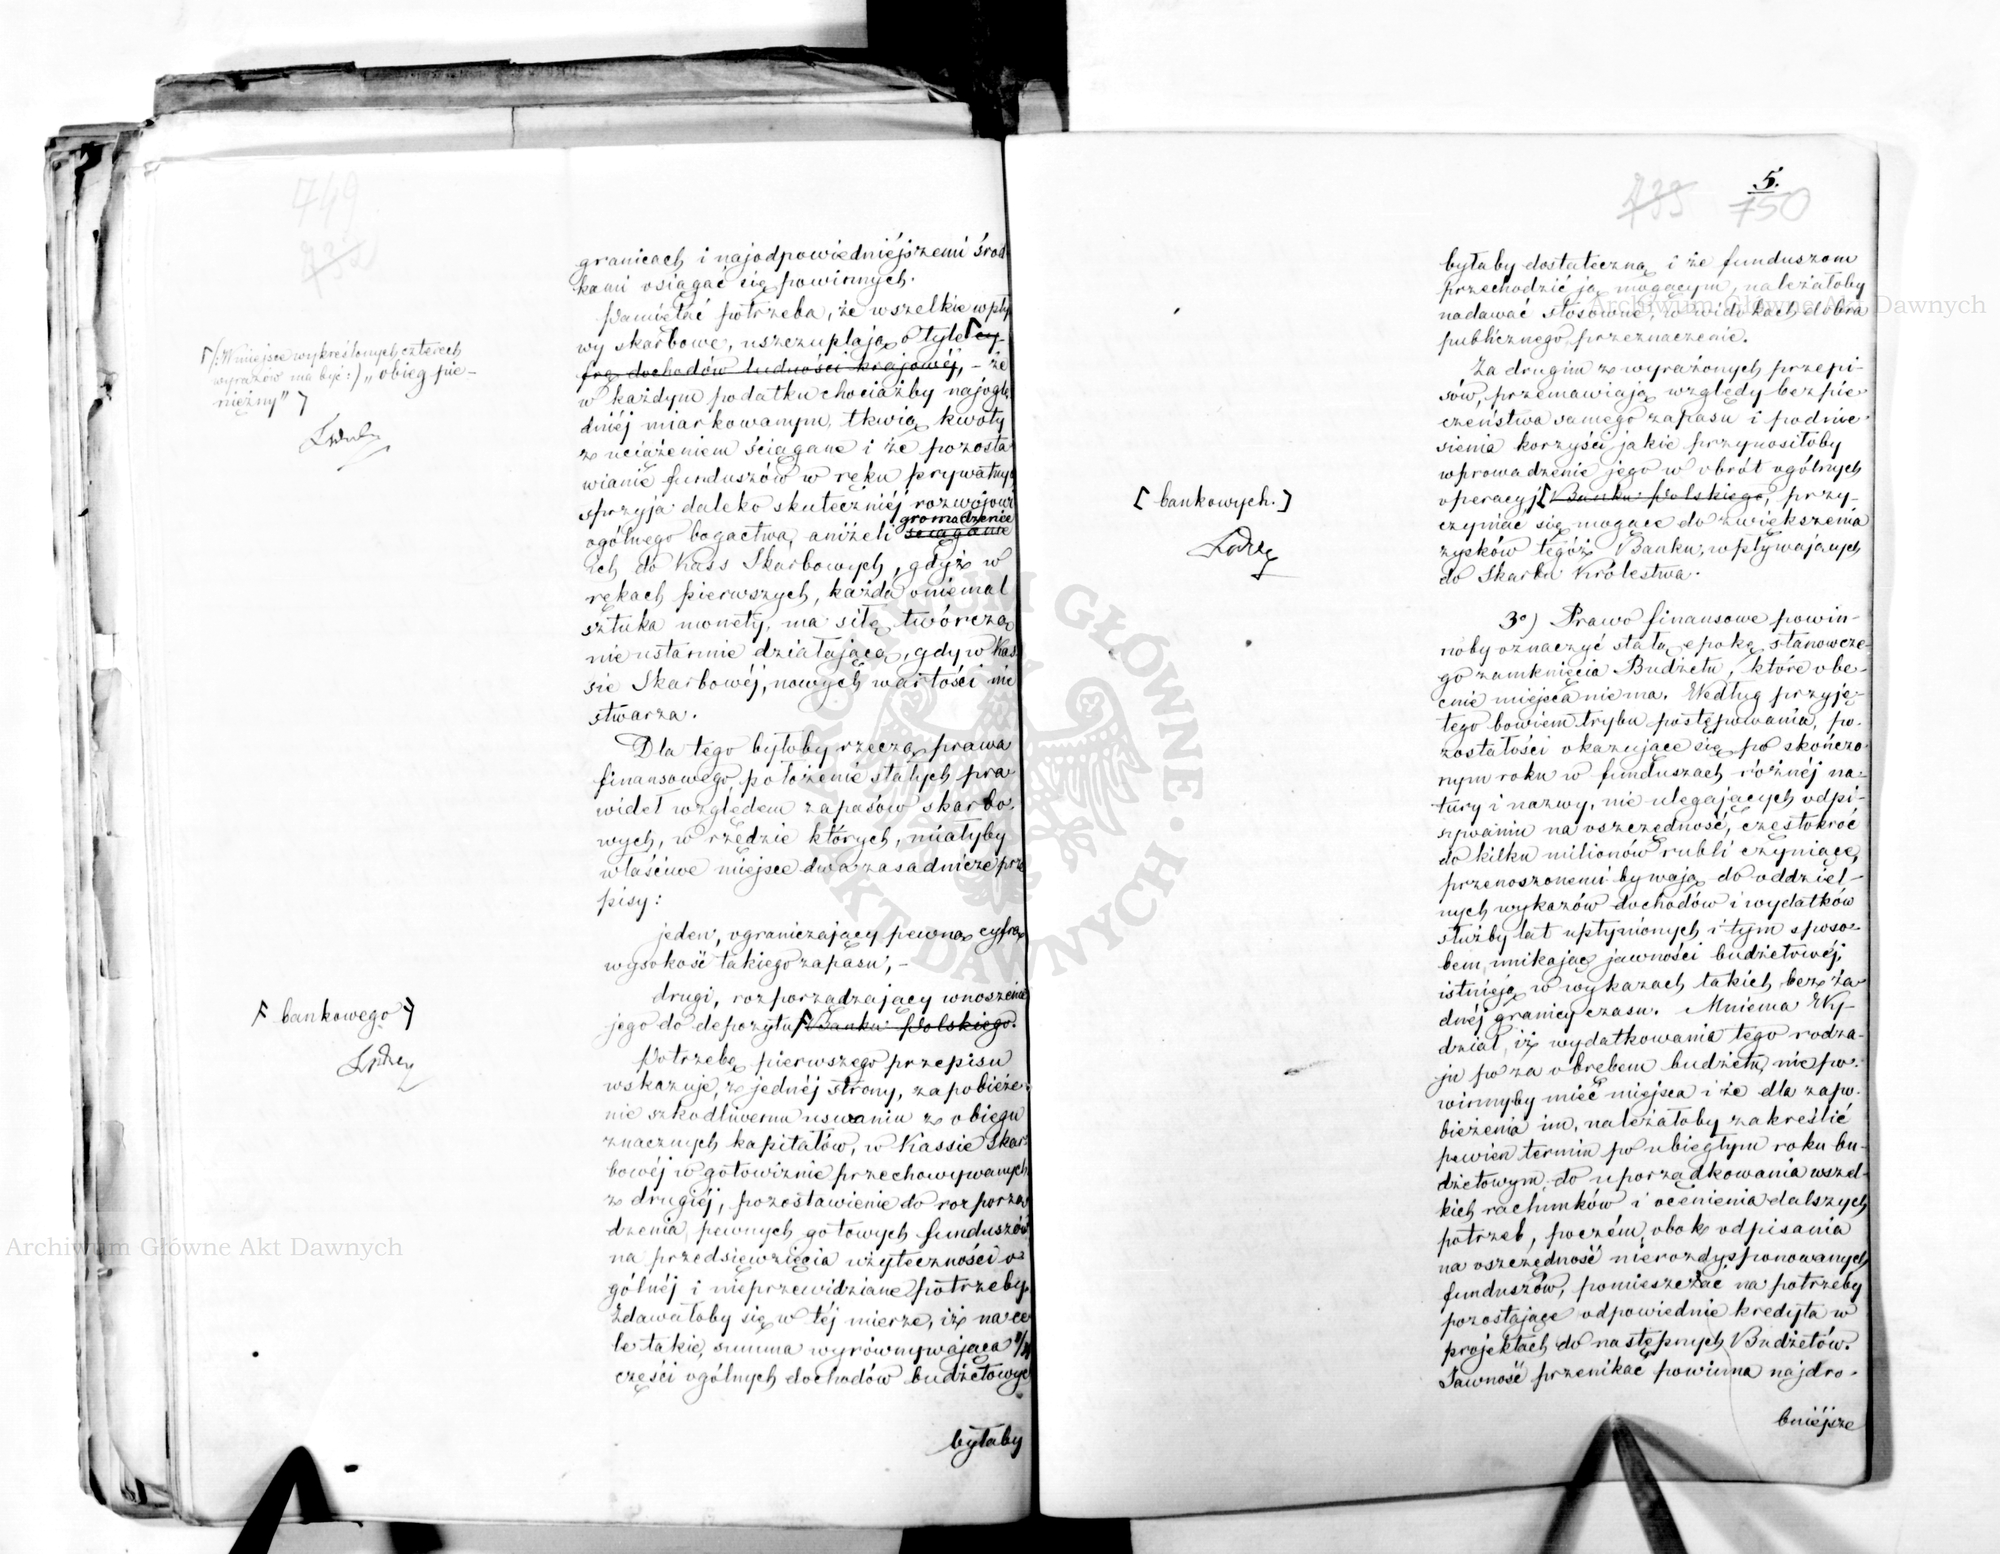 749
granicach i najodpowiedniéjszemi środ-
kami osiągać się powinnych.
Pamiętać potrzeba, że wszelkie wpły
wy skarbowe, uszczuplają o tyle cy-
frę dochodów ludności krajowéj, - że
w każdym podatku chociażby najoglę
dniéj miarkowanym, tkwią kwoty
z uciążeniem ściągane i że pozosta
wianie funduszów w ręku prywatnych
sprzyja daleko skuteczniéj rozwojowi
gromadzenie
ogólnego bogactwa, aniżeli ściąganie
ich do Kass Skarbowych, gdyż w
rękach pierwszych, każda oniemal
sztuka monety, ma siłę twórczą
nieustannie działającą, gdy w Kas
sie Skarbowéj, nowych wartości nie
stwarza.
Dla tego byłoby rzeczą prawa
finansowego, położenie stałych pra
wideł względem zapasów skarbo-
wych, w rzędzie których, miałyby
właściwe miejsce dwa zasadnicze prze
pisy:
jeden, ograniczający pewną cyfrą
wysokość takiego zapasu; -
drugi, rozporządzający wnoszenie
jego do depozytu Banku Polskiego.
Potrzebę pierwszego przepisu
wskazuje, z jednéj strony, zapobieże-
nie szkodliwemu usuwaniu z obiegu
znacznych kapitałów, w Kassie Skar-
bowéj w gotowiznie przechowywanych
z drugiéj, pozostawienie do rozporzą
dzenia pewnych gotowych funduszów
na przedsięwzięcia użyteczności o-
gólnéj i nieprzewidziane potrzeby.
Zdawałoby się w téj mierze, iż na ce
le takie, summa wyrównywająca
części ogólnych dochodów budżetowych
byłaby
[(: W miejsce wykreślonych czterech
wyrazów ma być:) „obieg pie-
niężny"]
[bankowego]
5.
735 750
byłaby dostateczną i że funduszom
przechodzić ją mogącym, należałoby
nadawać stosowne, w widokach dobra
publicznego, przeznaczenie.
Za drugim z wyrażonych przepi-
sów, przemawiają względy bezpie-
czeństwa samego zapasu i podnie-
sienia korzyści jakie przynosiłoby
wprowadzenie jego w obrót ogólnych
operacyj [Banku Polskiego, przy-
czyniać się mogące do zwiększenia
zysków tegóż Banku, wpływających
do Skarbu Królestwa.
[bankowych.]
3º) Prawo finansowe powin-
noby oznaczyć stałą epokę stanowcze-
go zamknięcia Budżetu, które obe-
cnie miejsca nie ma. Według przyję-
tego bowiem trybu postępowania, po-
zostałości okazujące się po skończo-
nym roku w funduszach różnéj na-
tury i nazwy, nie ulegających odpi-
sywaniu na oszczędność, częstokroć
do kilku milionów rubli czyniące,
przenoszonemi bywają do oddziel-
nych wykazów dochodów i wydatków
służby lat upłynionych i tym sposo-
bem, unikając jawności budżetowéj,
istnieją w wykazach takich bez ża-
dnéj granicy czasu. Mniema Wy-
dział, iż wydatkowania tego rodza-
ju po za obrębem budżetu, nie po-
winnyby mieć miejsca i że dla zapo-
bieżenia im, należałoby zakreślić
pewien termin po ubiegłym roku bu-
dżetowym, do uporządkowania wszel-
kich rachunków i ocenienia dalszych
potrzeb, poczém, obok odpisania
na oszczędność nierozdysponowanych
funduszów, pomieszczać na potrzeby
pozostające odpowiednie kredyta w
projektach do następnych Budżetów.
Jawność przenikać powinna najdro-
bniéjsze
Archiwum Główne Akt Dawnych
Archiwum Główne Akt Dawnych
ARCHIWUM GŁÓWNE · AKT DAWNYCH ·